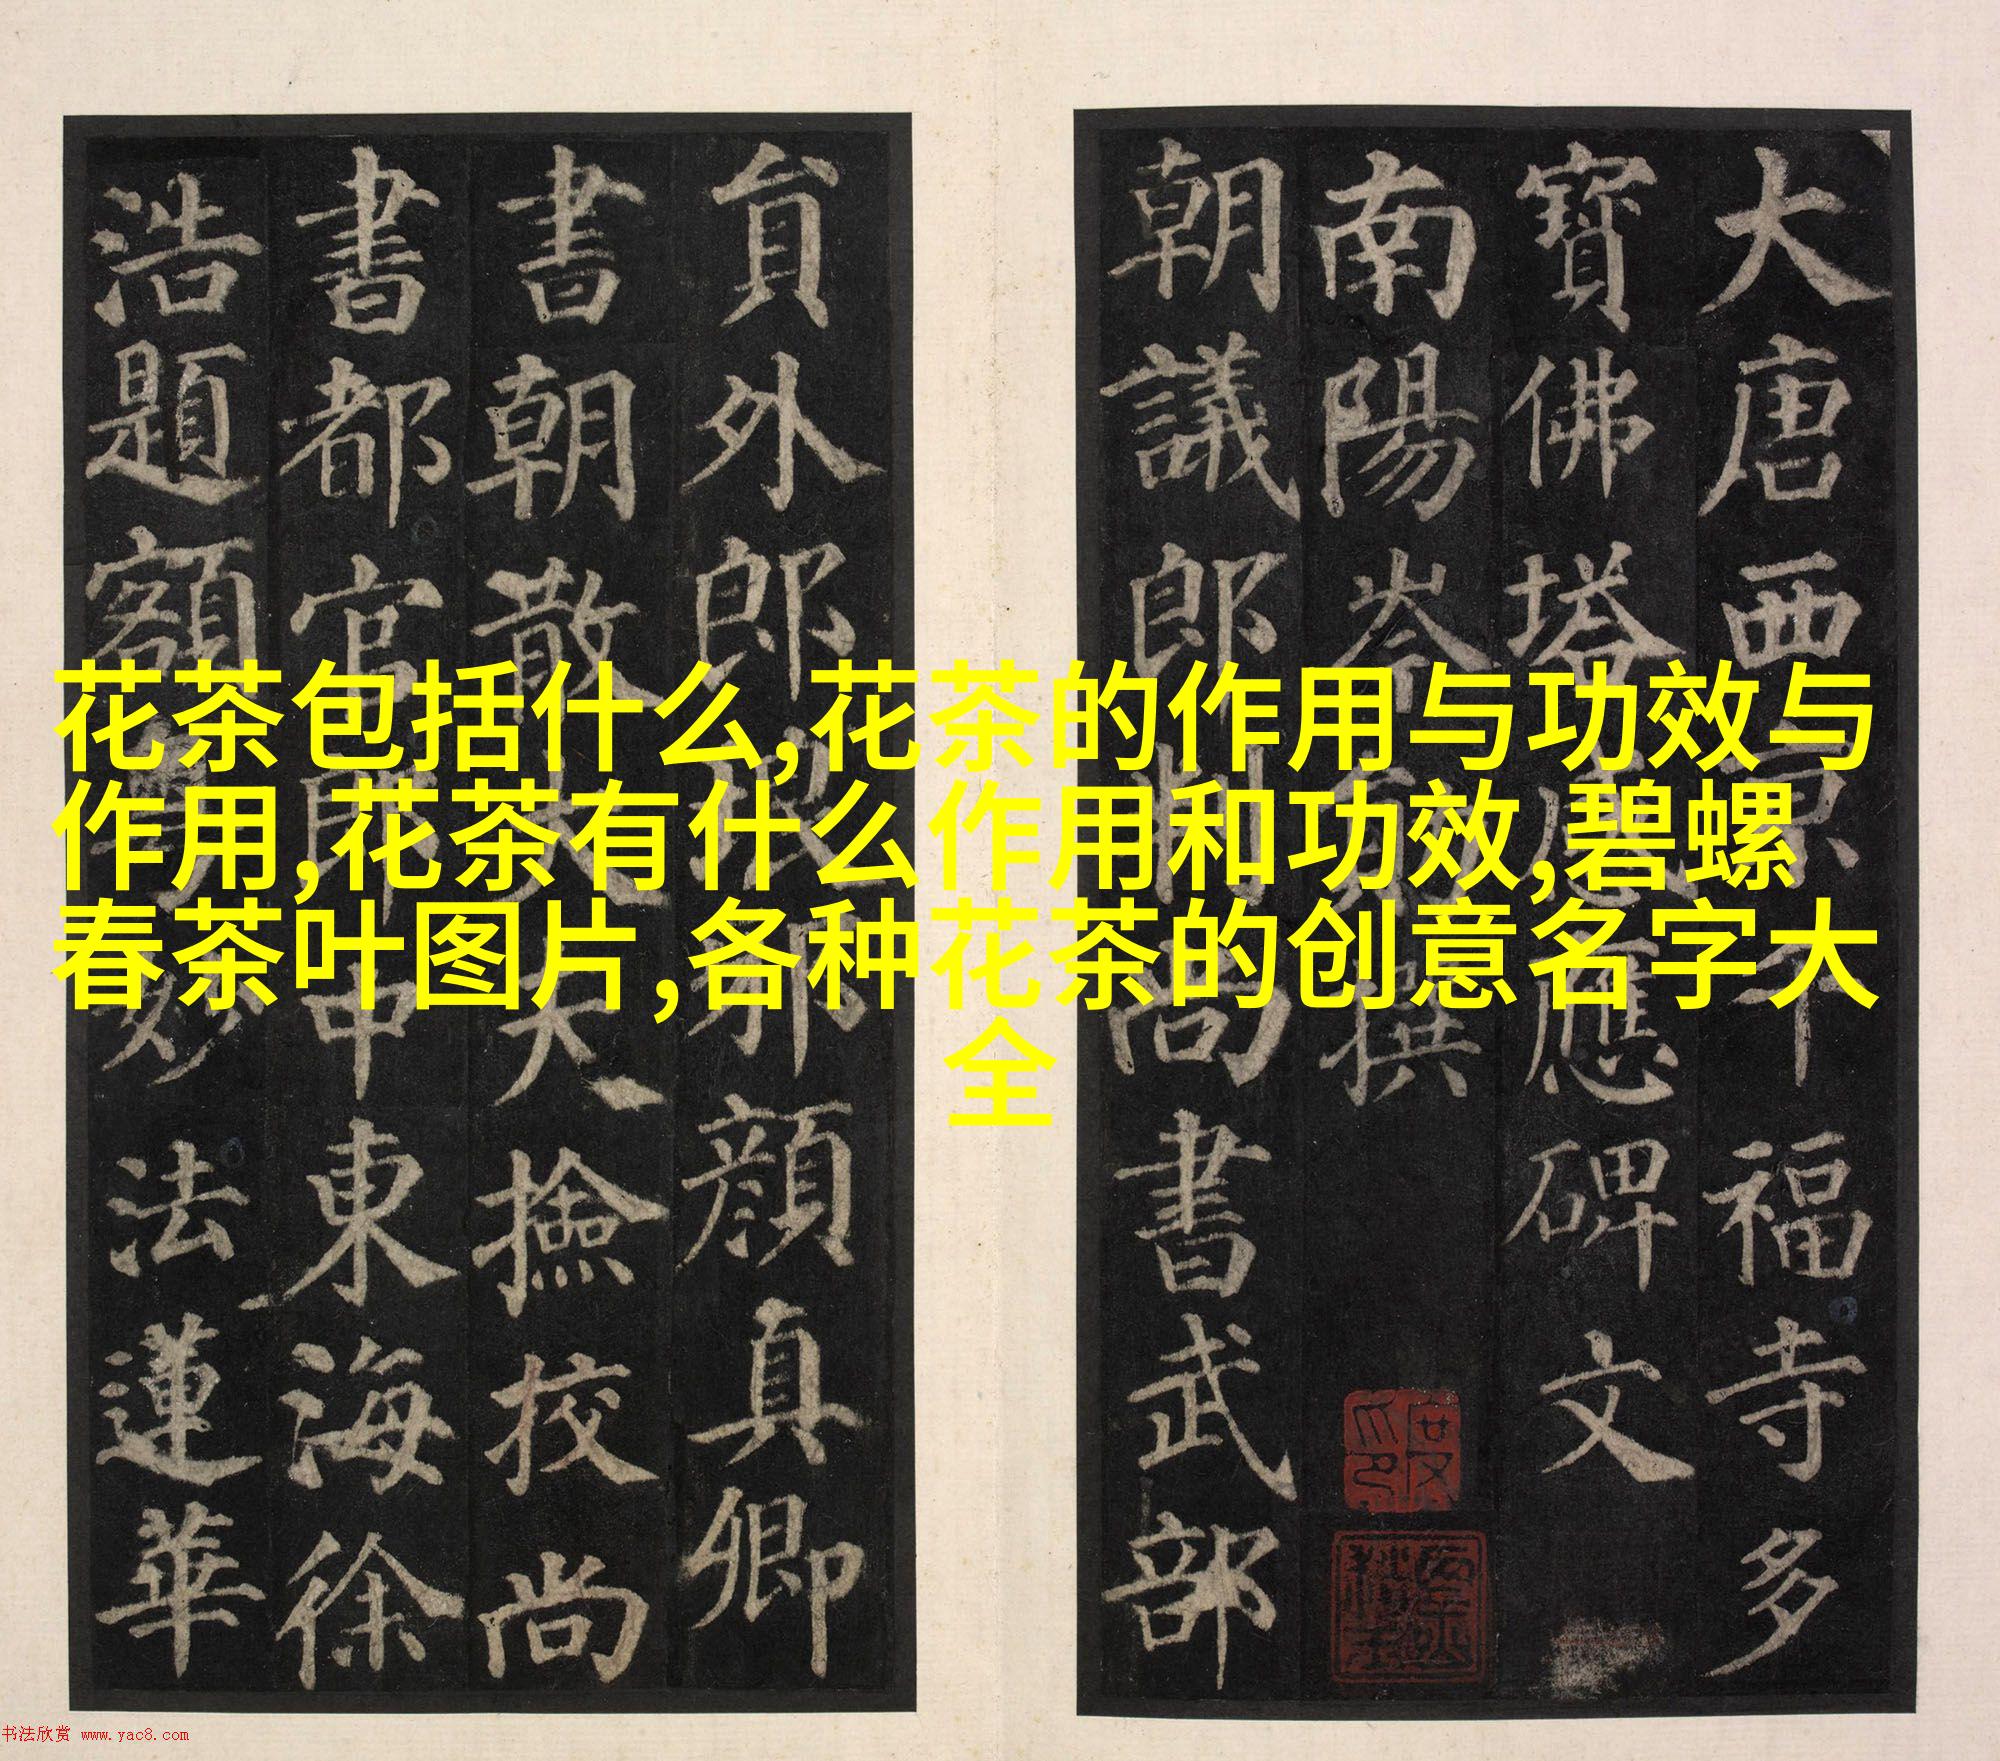 花茶包括什么,花茶的作用与功效与
作用,花茶有什么作用和功效,碧螺
春茶叶图片,各种花茶的创意名字大
全
大唐西京千福寺多
寶佛塔感應碑文
南陽岑勛撰
朝議郎判尚書武部
貟外郎琅邪顏真卿
書朝散大夫撿校尚
書都官郎中東海徐
浩題額粵妙法蓮華
书法欣赏 www.yac8.com